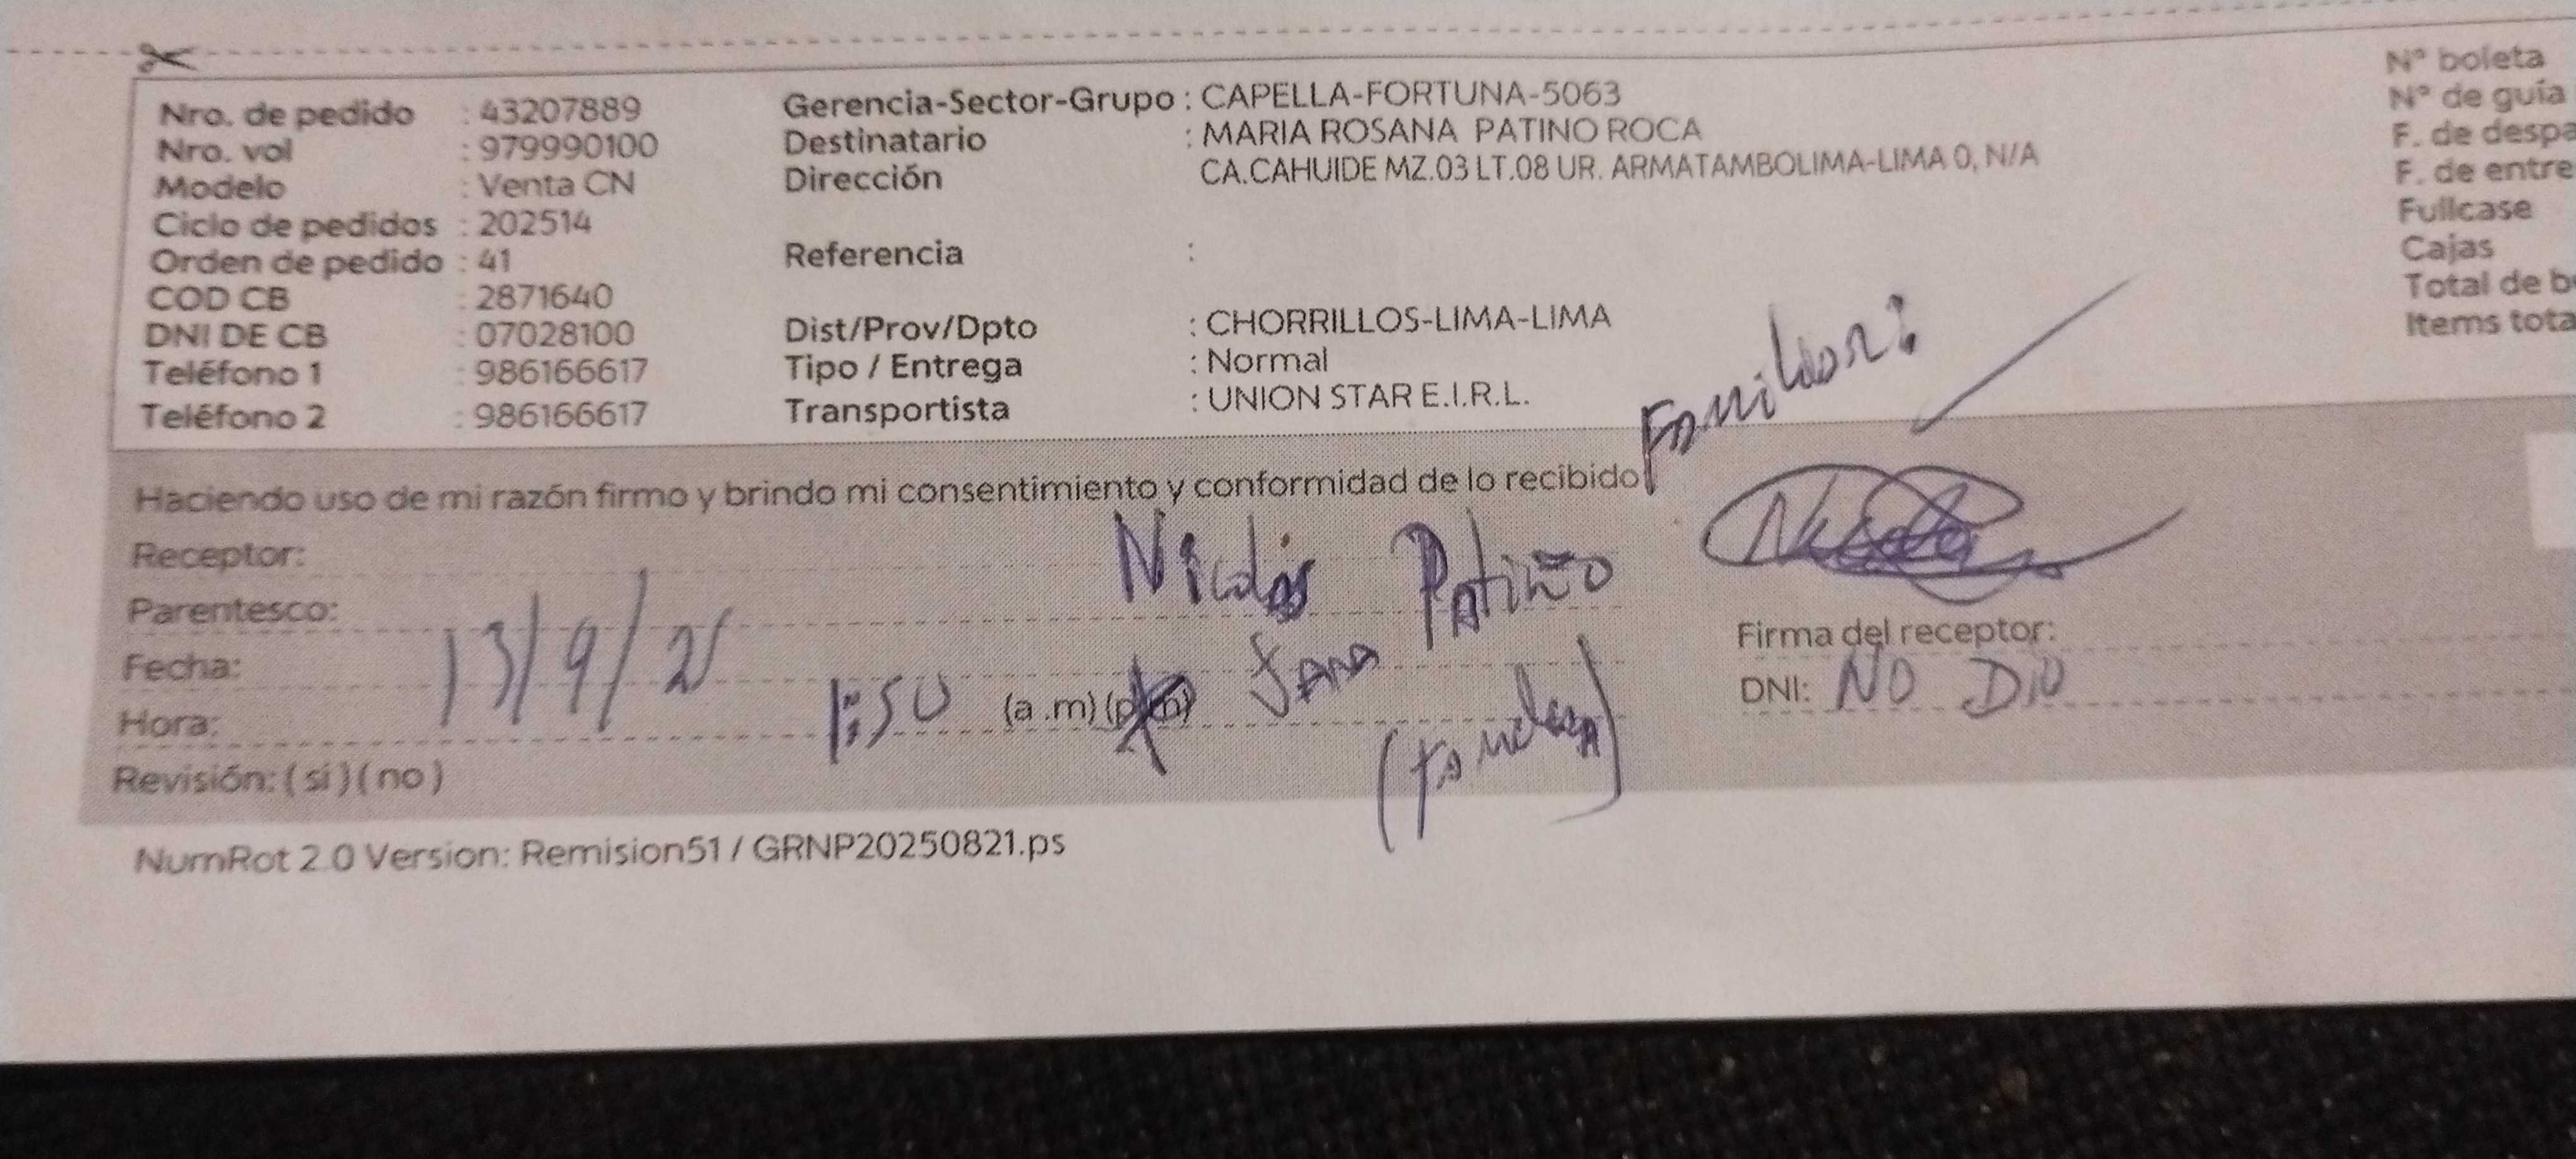 Nro. de pedido : 43207889
Nro. vol : 979990100
Modelo : Venta CN
Ciclo de pedidos : 202514
Orden de pedido : 41
COD CB : 2871640
DNI DE CB : 07028100
Teléfono 1 : 986166617
Teléfono 2 : 986166617
Gerencia-Sector-Grupo : CAPELLA-FORTUNA-5063
Destinatario : MARIA ROSANA PATINO ROCA
Dirección CA.CAHUIDE MZ.03 LT.08 UR. ARMATAMBOLIMA-LIMA 0, N/A
Referencia :
Dist/Prov/Dpto : CHORRILLOS-LIMA-LIMA
Tipo / Entrega : Normal
Transportista : UNION STAR E.I.R.L.
N° boleta
N° de guía
F. de despa
F. de entre
Fullcase
Cajas
Total de b
Items tota
Familiar:
Haciendo uso de mi razón firmo y brindo mi consentimiento y conformidad de lo recibido
Receptor: Nicolás Patiño
Parentesco:
Fecha: 13/9/25
Hora: 1:50 (a .m) (p.m)
Revisión: ( si ) ( no )
Firma del receptor:
DNI: NO DIO
NumRot 2.0 Version: Remision51 / GRNP20250821.ps